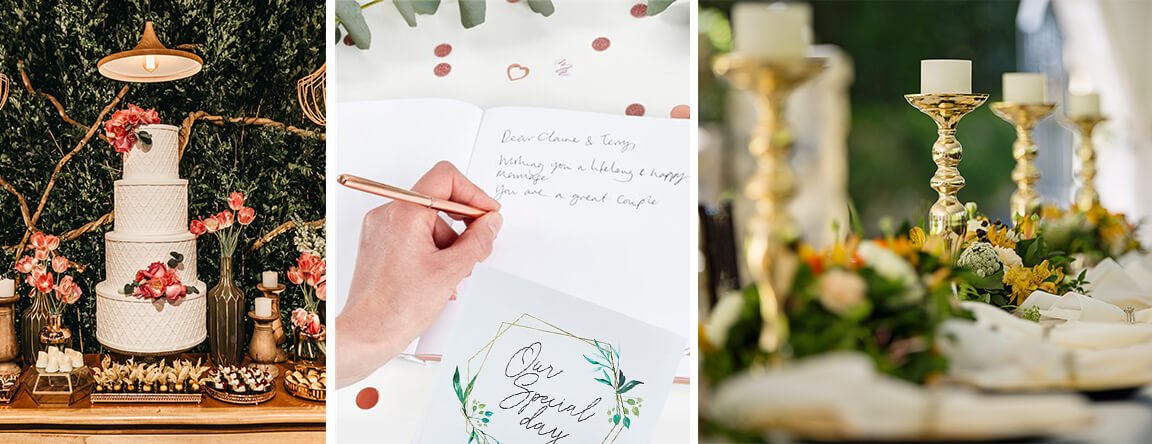 Dear Claire & Terry,
Wishing you a lifelong & happy
marriage
You are a great couple
Our
Special
day